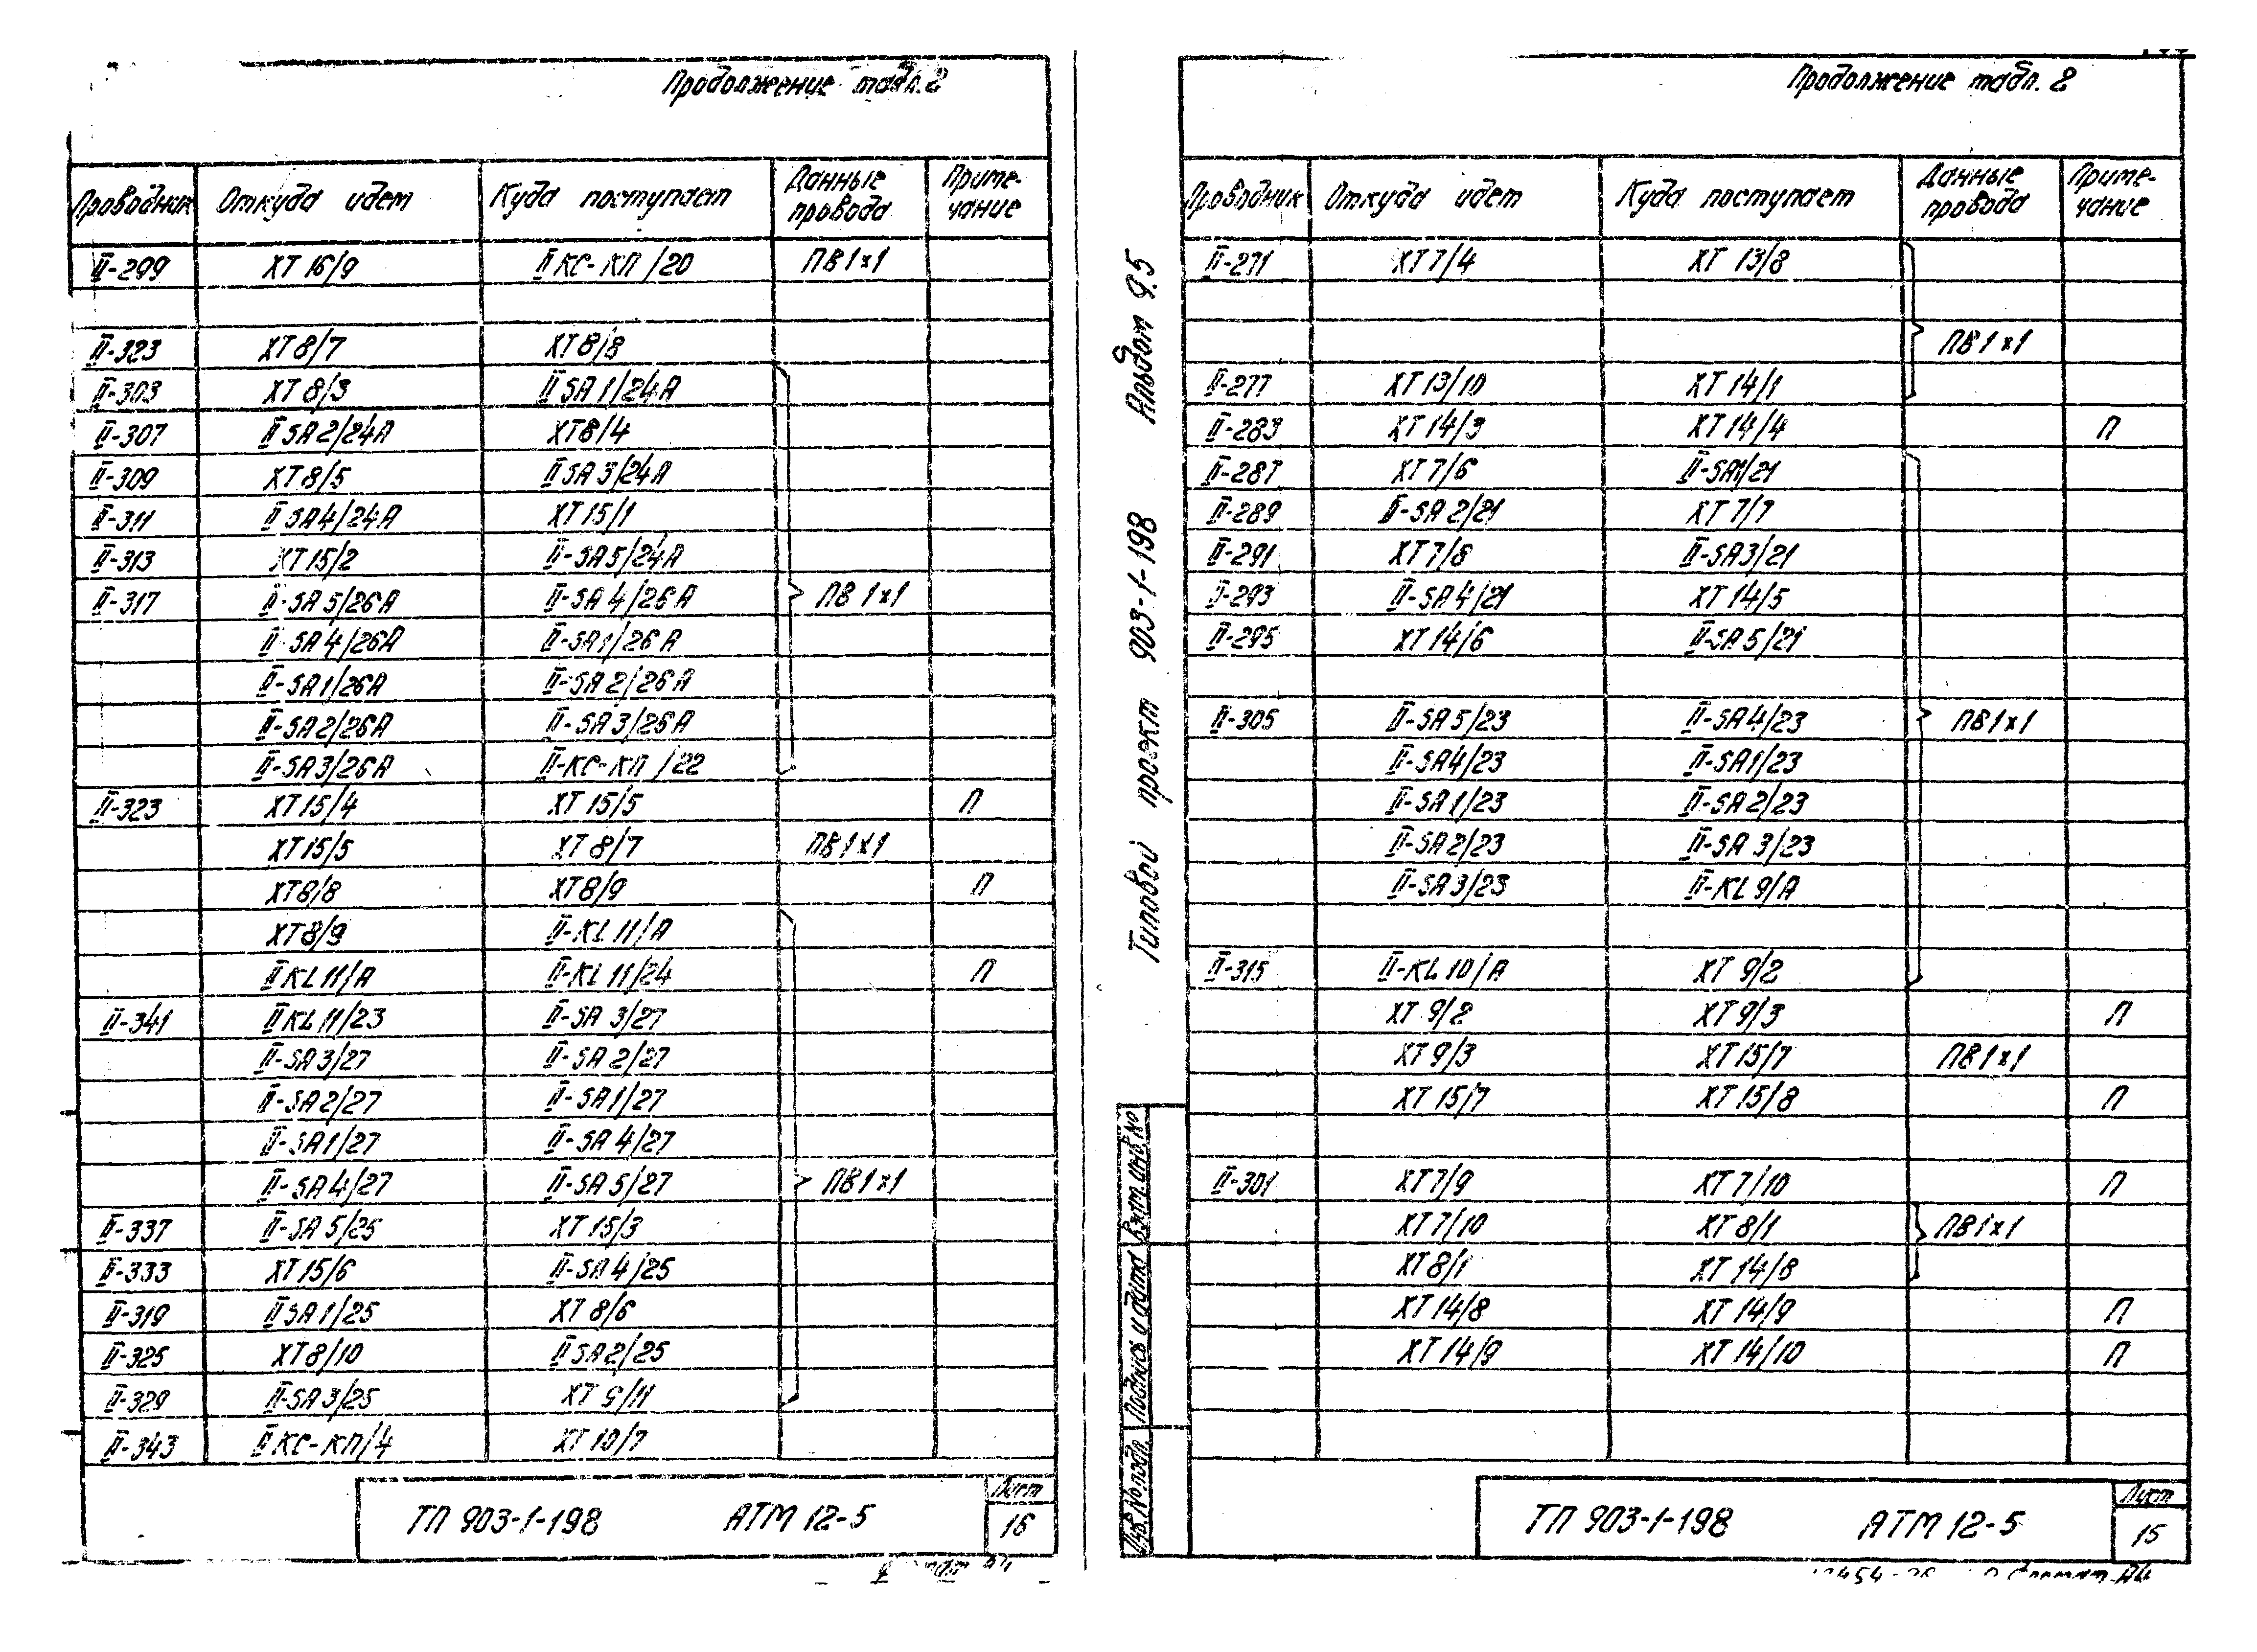 Продолжение табл. 2
Проводник Откуда идет Куда поступает Данные провода Приме-чание
II-299 XT 16/9 II КС-КП /20 ПВ 1×1
II-323 XT 8/7 XT 8/8
II-303 XT 8/3 II SA 1/24A
II-307 II SA 2/24A XT 8/4
II-309 XT 8/5 II SA 3/24A
II-311 II SA 4/24A XT 15/1
II-313 XT 15/2 II-SA 5/24A
II-317 II-SA 5/26A II-SA 4/26A ПВ 1×1
II-SA 4/26A II-SA 1/26A
II-SA 1/26A II-SA 2/26A
II-SA 2/26A II-SA 3/26A
II-SA 3/26A II-КС-КП /22
II-323 XT 15/4 XT 15/5 П
XT 15/5 XT 8/7 ПВ 1×1
XT 8/8 XT 8/9 П
XT 8/9 II-KL 11/A
II KL 11/A II-KL 11/24 П
II-341 II KL 11/23 II-SA 3/27
II-SA 3/27 II-SA 2/27
II-SA 2/27 II-SA 1/27
II-SA 1/27 II-SA 4/27
II-SA 4/27 II-SA 5/27 ПВ 1×1
II-337 II-SA 5/25 XT 15/3
II-333 XT 15/6 II-SA 4/25
II-319 II SA 1/25 XT 8/6
II-325 XT 8/10 II SA 2/25
II-329 II-SA 3/25 XT 9/11
II-343 II КС-КП/4 XT 10/7
ТП 903-1-198 АТМ 12-5 Лист 16
Продолжение табл. 2
Проводник Откуда идет Куда поступает Данные провода Приме-чание
II-271 XT 7/4 XT 13/8
ПВ 1×1
II-277 XT 13/10 XT 14/1
II-283 XT 14/3 XT 14/4 П
II-287 XT 7/6 II-SA1/21
II-289 II-SA 2/21 XT 7/7
II-291 XT 7/8 II-SA3/21
II-293 II-SA 4/21 XT 14/5
II-295 XT 14/6 II-SA 5/21
II-305 II-SA 5/23 II-SA 4/23 ПВ 1×1
II-SA4/23 II-SA1/23
II-SA 1/23 II-SA 2/23
II-SA 2/23 II-SA 3/23
II-SA 3/23 II-KL 9/A
II-315 II-KL 10/A XT 9/2
XT 9/2 XT 9/3 П
XT 9/3 XT 15/7 ПВ 1×1
XT 15/7 XT 15/8 П
II-301 XT 7/9 XT 7/10 П
XT 7/10 XT 8/1 ПВ 1×1
XT 8/1 XT 14/8
XT 14/8 XT 14/9 П
XT 14/9 XT 14/10 П
ТП 903-1-198 АТМ 12-5 Лист 15
Формат А4
Типовой проект 903-1-198 Альбом 9.5
Инв. № подл. Подпись и дата Взам. инв. №